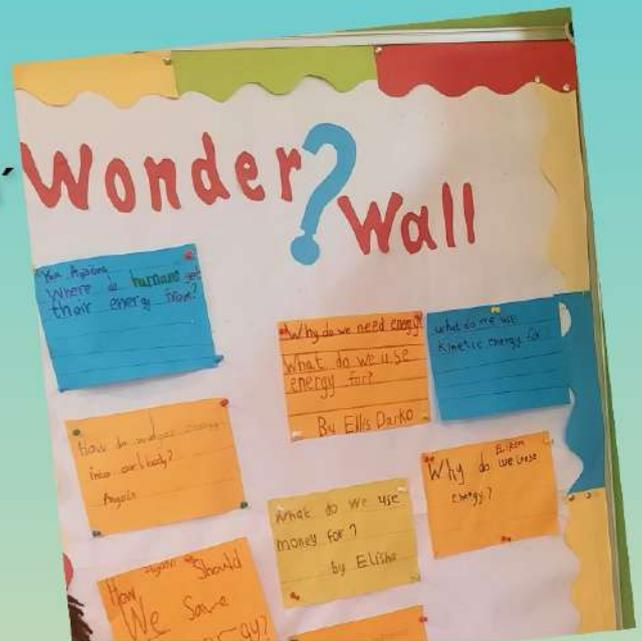 Wonder?
Wall
Yaa Agyeiwa
Where do humans get
their energy from?
Why do we need energy?
What do we use
energy for?
By Ellis Darko
what do we use
Kinetic energy for
How do we get energy
into our body?
Angela
What do we use
money for?
by Elisha
Why do we use
energy?
How Should
We Save
energy?